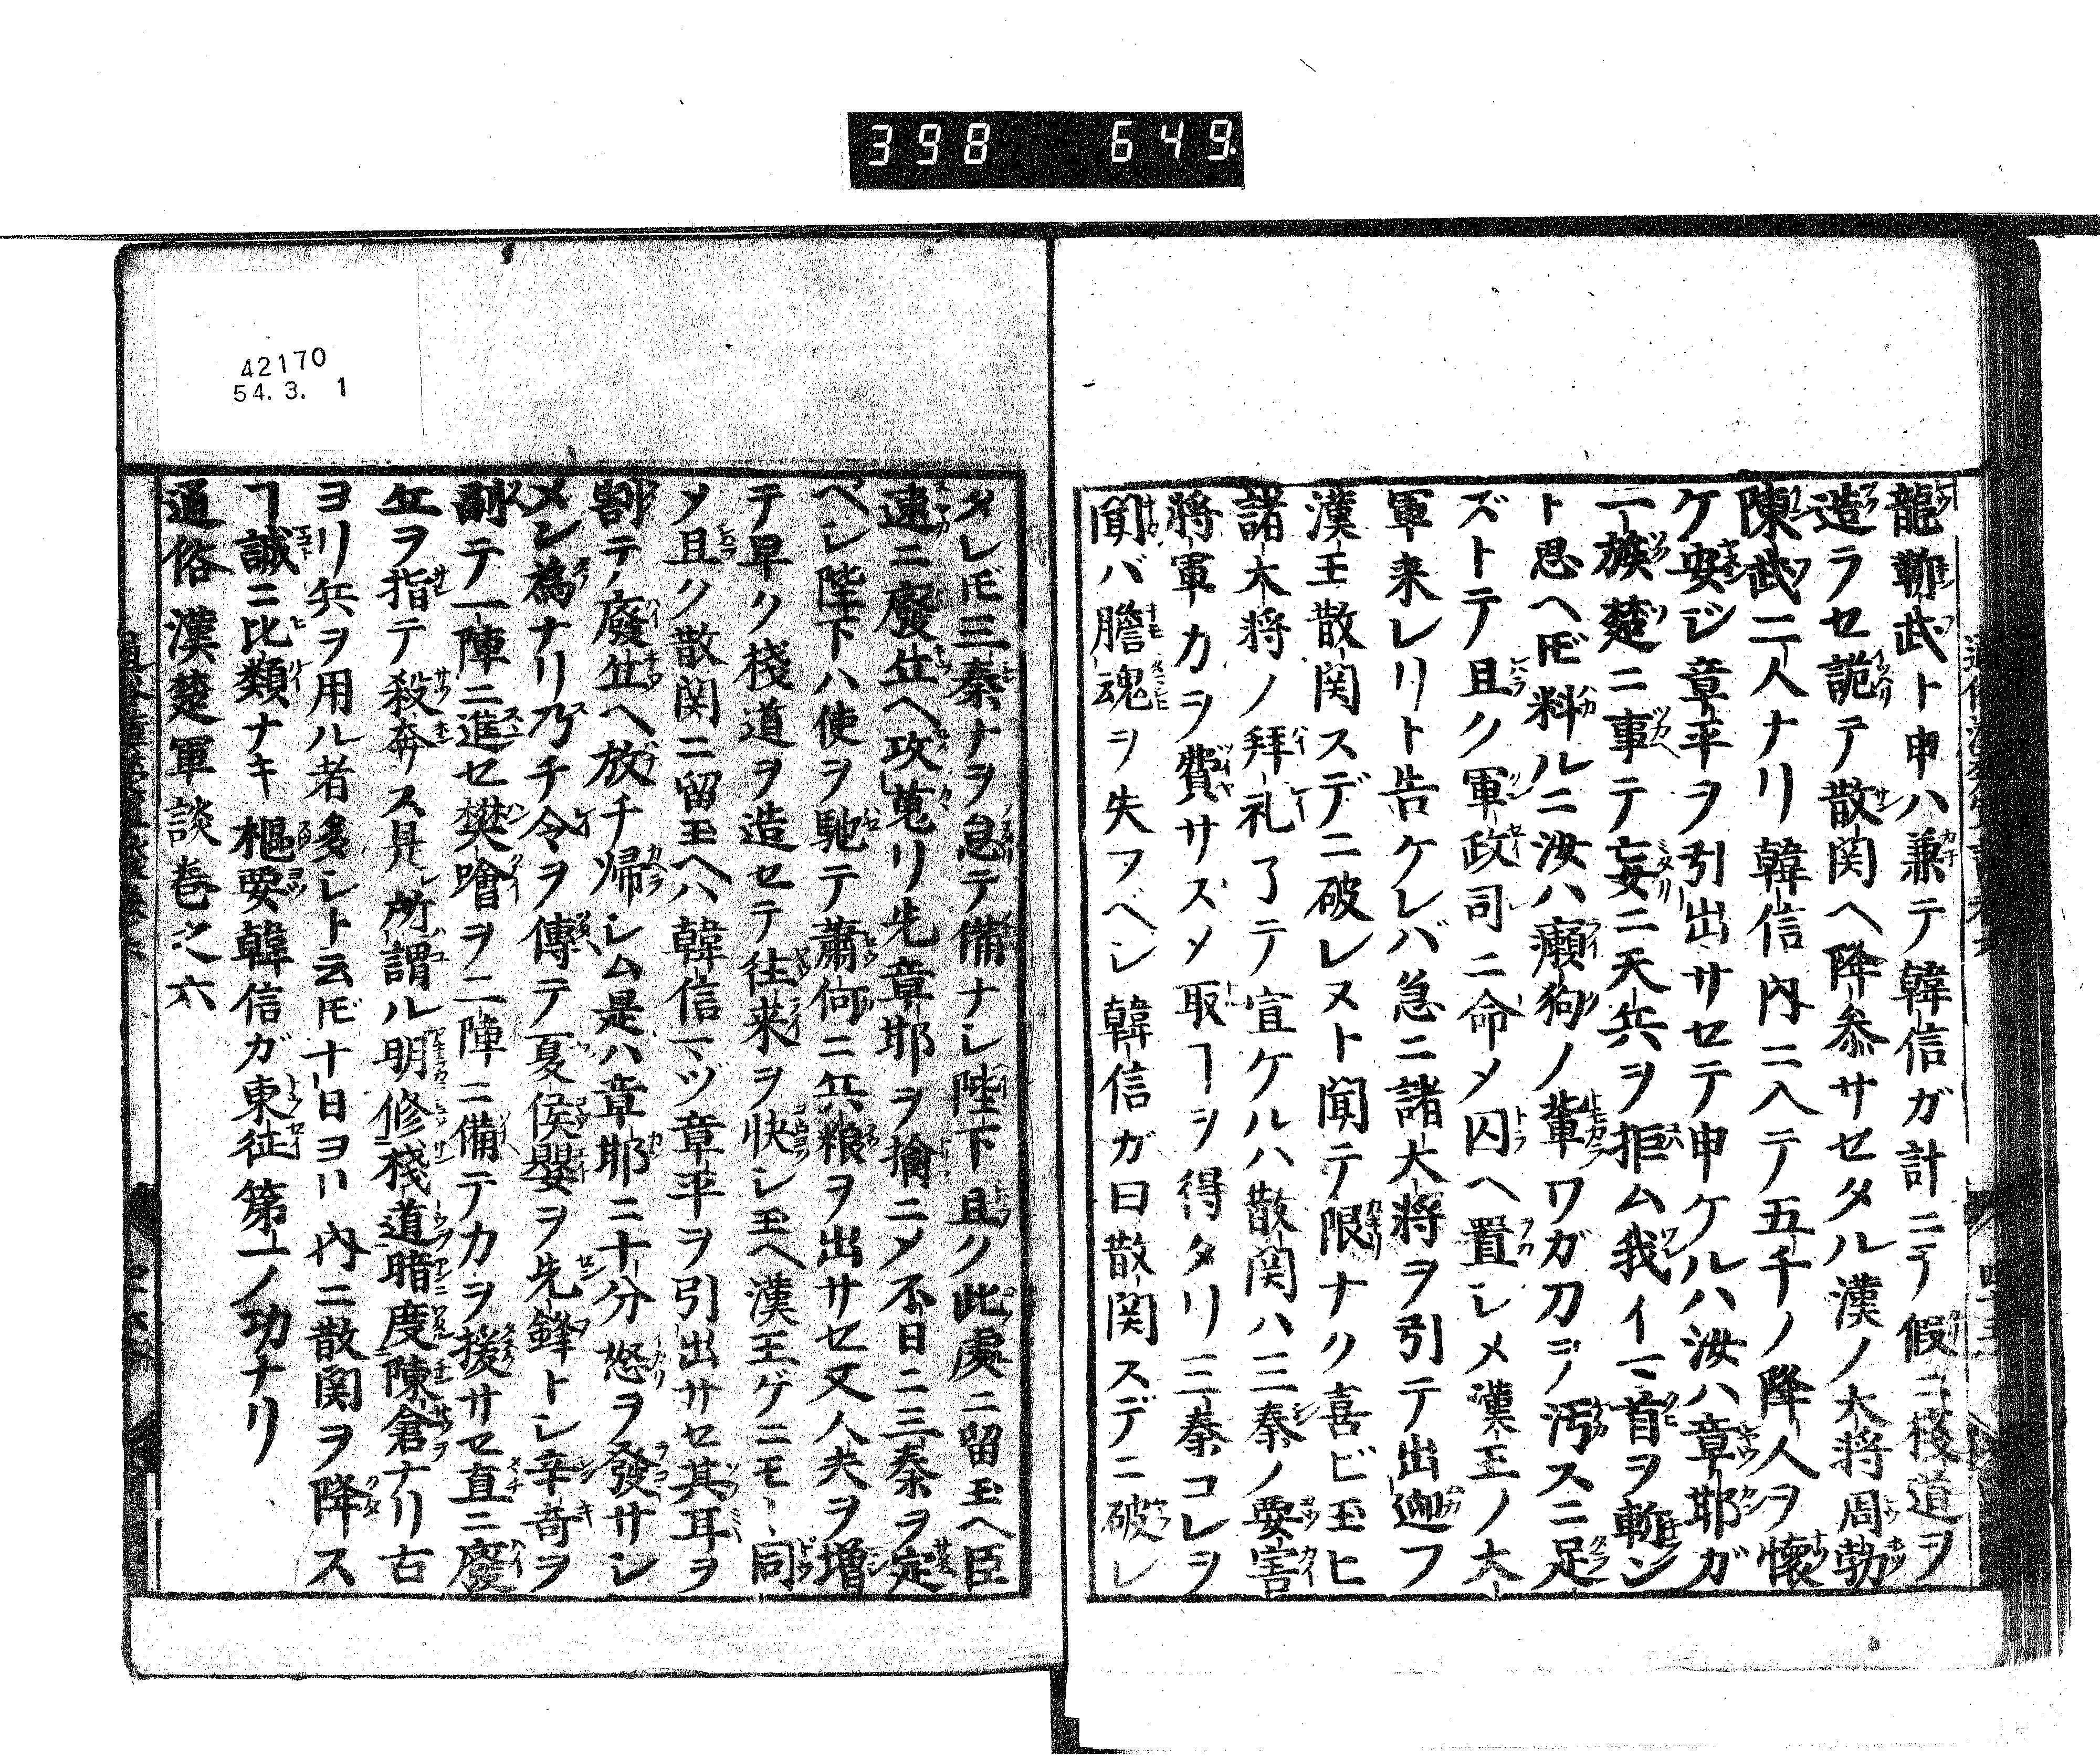 398 649
龍靳武ト申ハ兼テ韓信ガ計ニテ假ニ棧道ヲ
造ラセ詭テ散関ヘ降参サセタル漢ノ大将周勃
陳武二人ナリ韓信内ニ入テ五千ノ降人ヲ懷
ケ安ジ章平ヲ引出サセテ申ケルハ汝ハ章邯ガ
一族楚ニ事テ妄ニ天兵ヲ拒ム我イマ首ヲ斬ン
ト思ヘ𪜈料ルニ汝ハ癩狗ノ輩ワガ刀ヲ汚スニ足
ズトテ且ク軍政司ニ命メ囚ヘ置シメ漢王ノ大
軍来レリト告ケレバ急ニ諸大将ヲ引テ出迎フ
漢王散関スデニ破レヌト聞テ限ナク喜ビ玉ヒ
諸大将ノ拜礼了テ宣ケルハ散関ハ三秦ノ要害
将軍カヲ費サズメ取ヿヲ得タリ三秦コレヲ
聞バ膽魂ヲ失フベシ韓信ガ曰散関スデニ破レ
タレ𪜈三秦ナヲ怠テ備ナシ陛下且ク此處ニ留玉ヘ臣
速ニ廢丘ヘ攻蒐リ先章邯ヲ擒ニメ不日ニ三秦ヲ定
ベシ陛下ハ使ヲ馳テ蕭何ニ兵粮ヲ出サセ又人夫ヲ增
テ早ク棧道ヲ造セテ往来ヲ快シ玉ヘ漢王ゲニモト同
メ且ク散関ニ留玉ヘハ韓信マヅ章平ヲ引出サセ其耳ヲ
割テ廢丘ヘ放チ帰シム是ハ章邯ニ十分怒ヲ發サシ
メン為ナリ乃チ令ヲ傳テ夏侯嬰ヲ先鋒トシ辛奇ヲ
副テ一陣ニ進セ樊噲ヲ二陣ニ備テカヲ援サセ直ニ廢
丘ヲ指テ殺奔ス是所謂ル明修棧道暗度陳倉ナリ古
ヨリ兵ヲ用ル者多シト云𪜈十日ヨリ内ニ散関ヲ降ス
ヿ誠ニ比類ナキ樞要韓信ガ東征第一ノ功ナリ
通俗漢楚軍談巻之六
42170
54. 3. 1